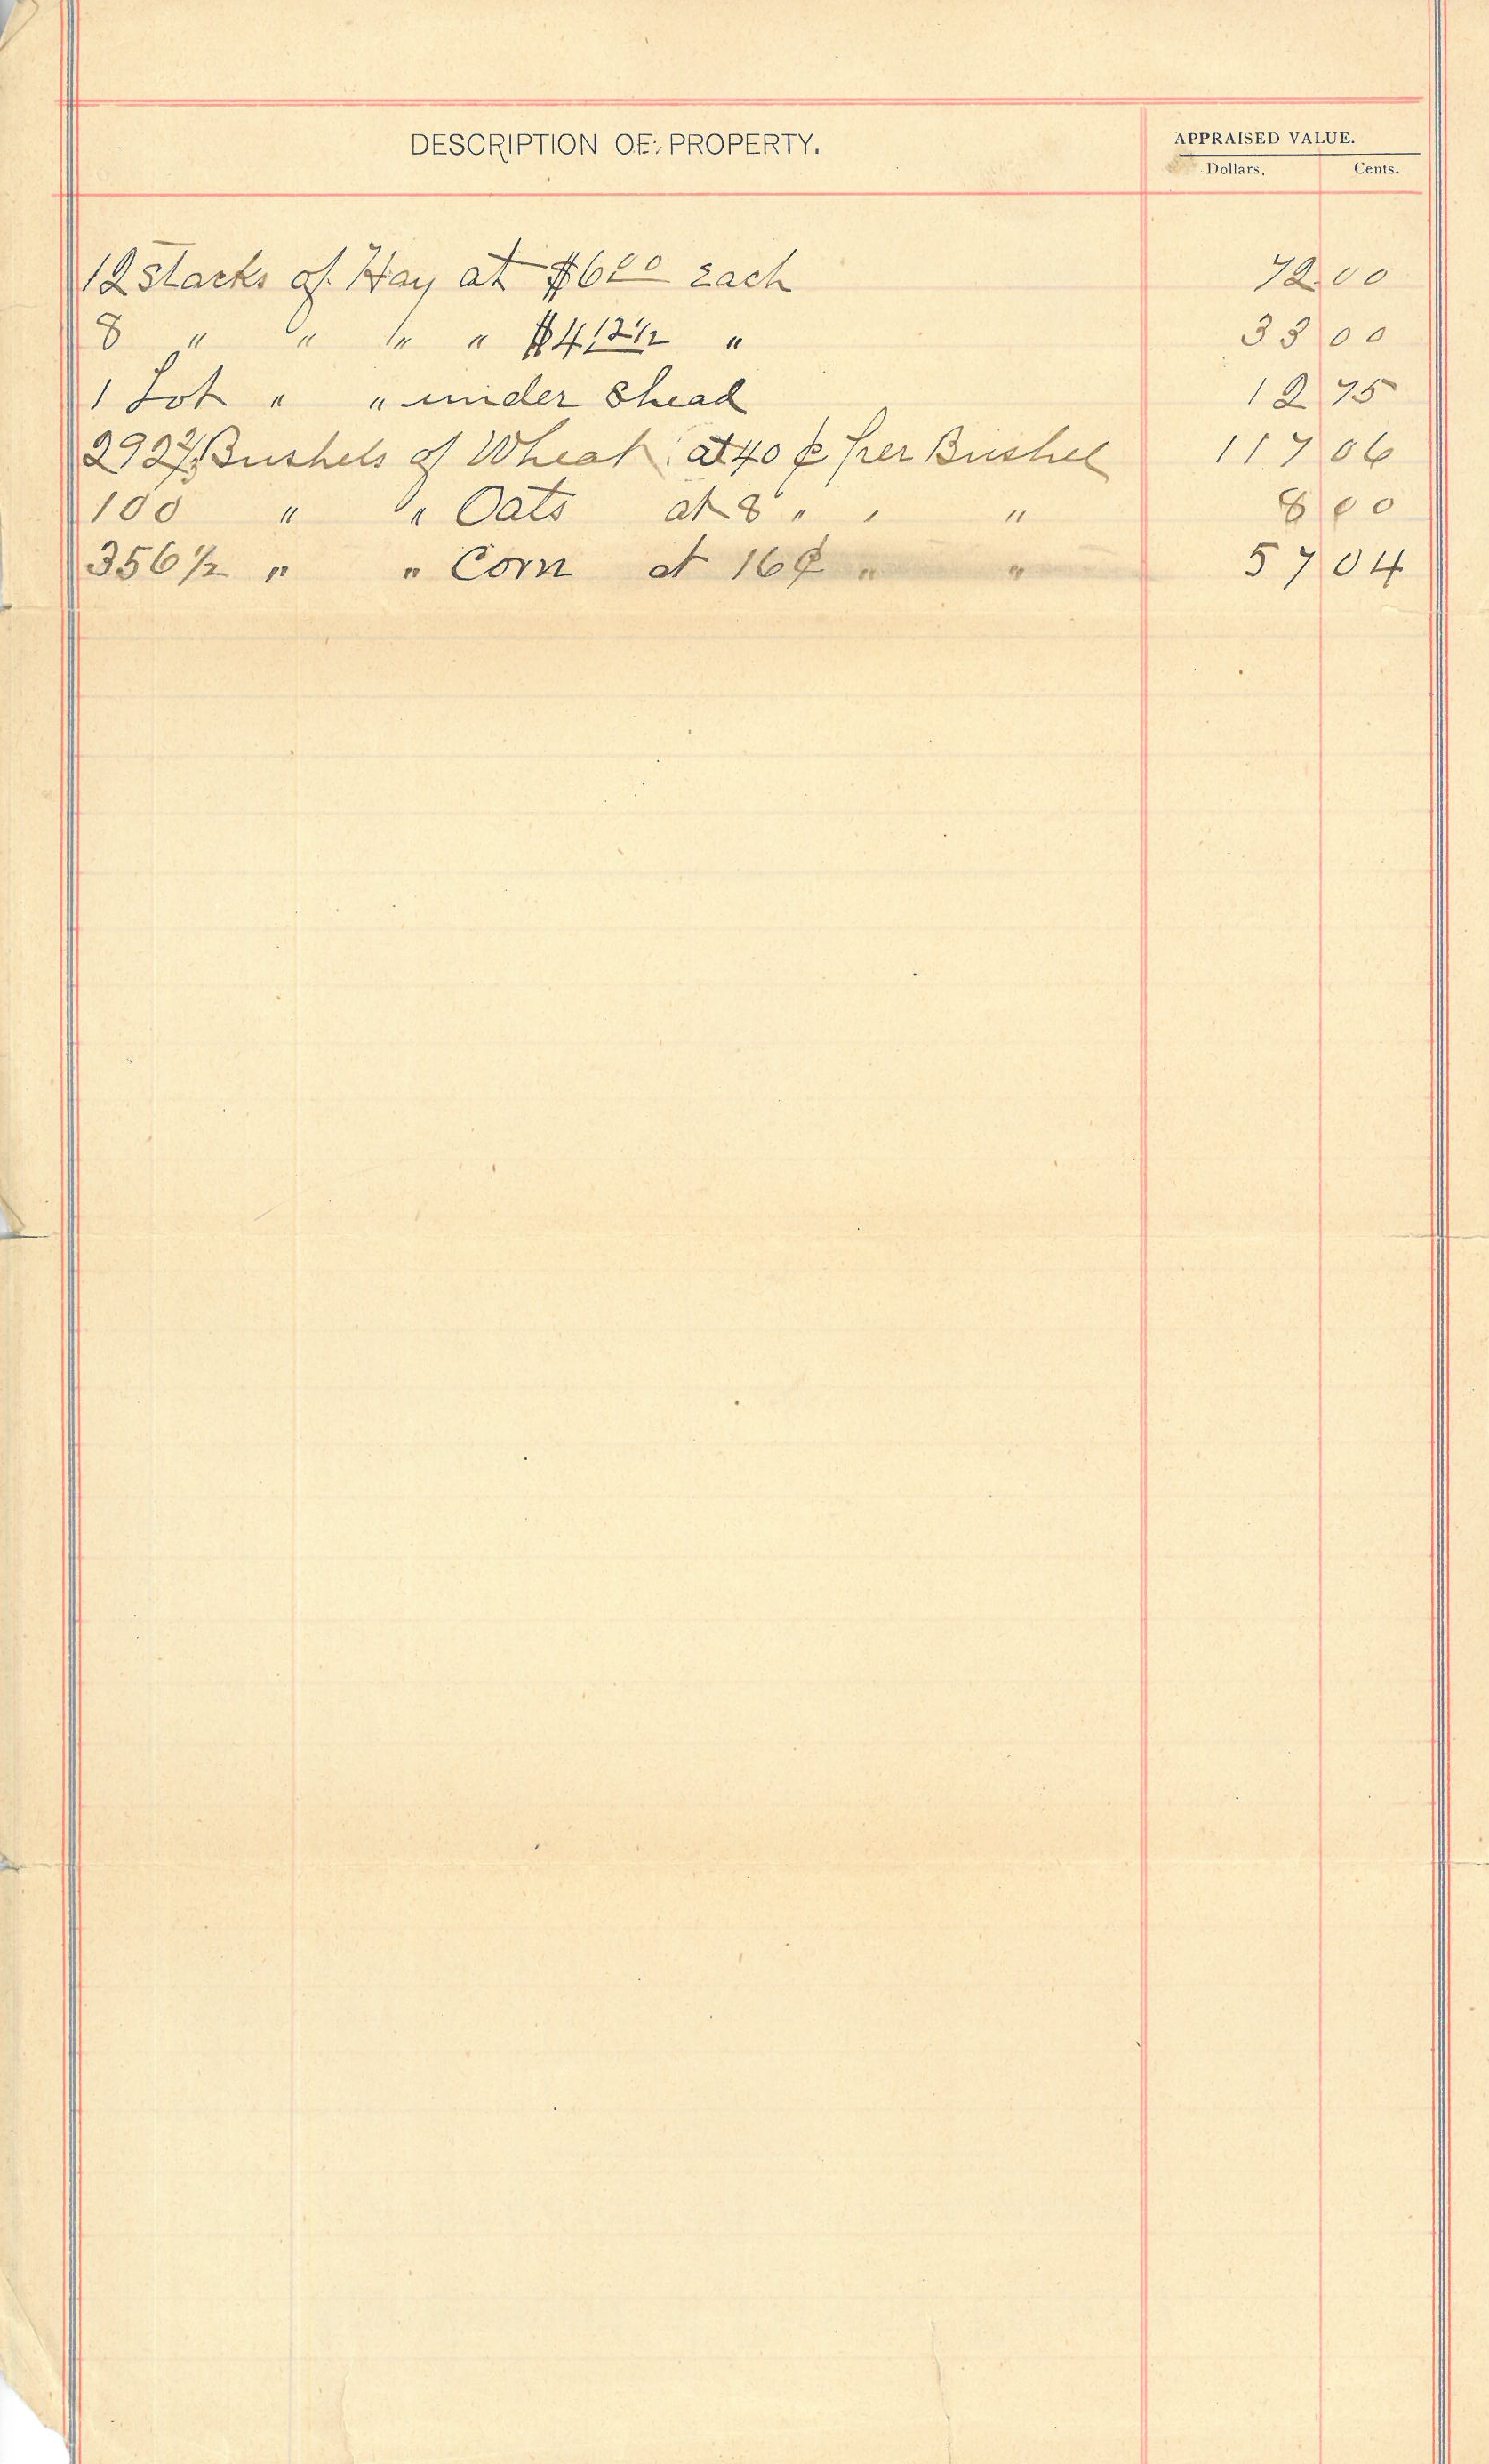 DESCRIPTION OF PROPERTY.
APPRAISED VALUE.
Dollars. Cents.
12 Stacks of Hay at $6 00 Each 72 00
8 " " " " $4 12 1/2 " 33 00
1 Lot " " under Shead 12 75
292 2/3 Bushels of Wheat at 40 ¢ per Bushel 117 06
100 " " Oats at 8 " " " 8 00
356 1/2 " " Corn at 16 ¢ " " 57 04